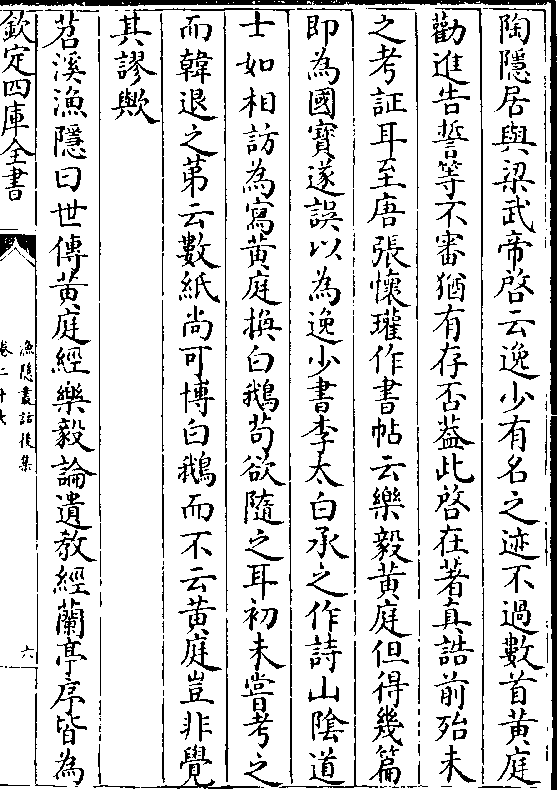 陶隱居與梁武帝啓云逸少有名之迹不過數首黄庭
勸進告誓等不審猶有存否葢此啓在著真誥前殆未
之考証耳至唐張懷瓘作書帖云樂毅黄庭但得幾篇
即為國寳遂誤以為逸少書李太白承之作詩山陰道
士如相訪為寫黄庭換白鵝茍欲隨之耳初未嘗考之
而韓退之苐云數紙尚可博白鵝而不云黄庭豈非覺
其謬歟
苕溪漁隱曰世傳黄庭經樂毅論遺教經蘭亭序皆為
欽定四庫全書
漁隱叢話後集
卷二十
六